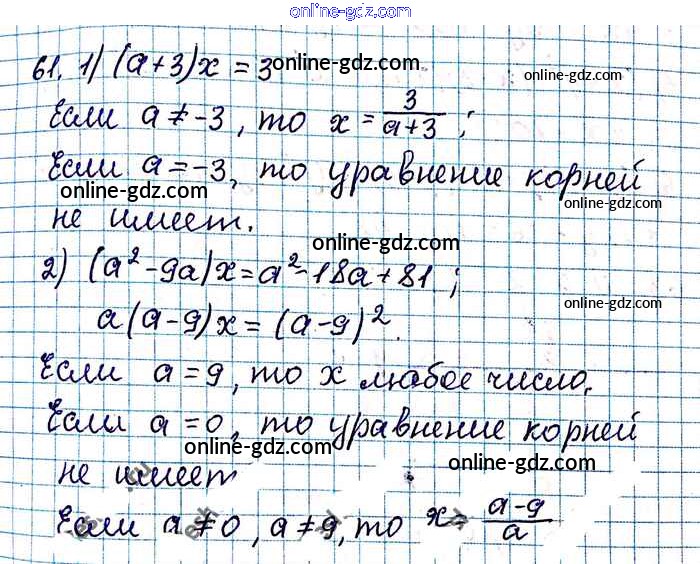 online-gdz.com
online-gdz.com
61. 1) (a+3)x = 3 online-gdz.com
online-gdz.com
Если a ≠ -3, то x = 3/(a+3);
Если a = -3, то уравнение корней
online-gdz.com
online-gdz.com
не имеет.
online-gdz.com
2) (a² - 9a)x = a² - 18a + 81;
online-gdz.com
a(a-9)x = (a-9)².
Если a = 9, то x любое число.
Если a = 0, то уравнение корней
online-gdz.com
online-gdz.com
не имеет
Если a ≠ 0, a ≠ 9, то x = (a-9)/a